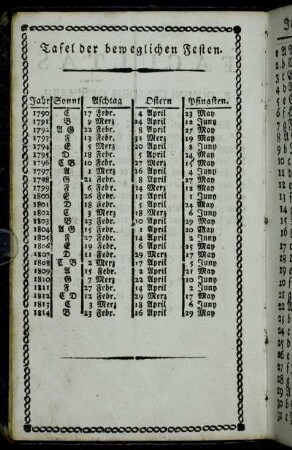 Tafel der beweglichen Festen.
Jahr Sonnt Aschtag Ostern Pfingsten.
1790 C 17 Febr. 4 April 23 May
1791 B 9 Merz 24 April 12 Juny
1792 A G 22 Febr. 8 April 27 May
1793 F 13 Febr. 31 Merz 19 May
1794 E 5 Merz 20 April 8 Juny
1795 D 18 Febr. 5 April 24 May
1796 C B 10 Febr. 27 Merz 15 May
1797 A 1 Merz 16 April 4 Juny
1798 G 21 Febr. 8 April 27 May
1799 F 6 Febr. 24 Merz 12 May
1800 E 26 Febr. 13 April 1 Juny
1801 D 18 Febr. 5 April 24 May
1802 C 3 Merz 18 April 6 Juny
1803 B 23 Febr. 10 April 29 May
1804 A G 15 Febr. 1 April 20 May
1805 F 27 Febr. 14 April 2 Juny
1806 E 19 Febr. 6 April 25 May
1807 D 11 Febr. 29 Merz 17 May
1808 C B 2 Merz 17 April 5 Juny
1809 A 15 Febr. 2 April 21 May
1810 G 7 Merz 22 April 10 Juny
1811 F 27 Febr. 14 April 2 Juny
1812 E D 12 Febr. 29 Merz 17 May
1813 C 3 Merz 18 April 6 Juny
1814 B 23 Febr. 10 April 29 May